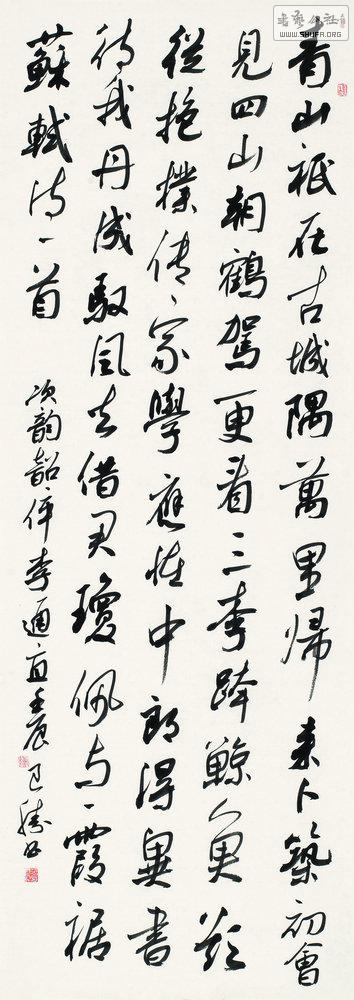 書藝公社
WWW.SHUFA.ORG
青山祇在古城隅萬里歸来卜築初會
見四山朝鶴駕更看三李跨鯨魚欲
從抱樸傳家學應怪中郎得異書
待我丹成馭風去借君瓊佩与霞裾
蘇軾诗一首
次韵韶倅李通直壬辰